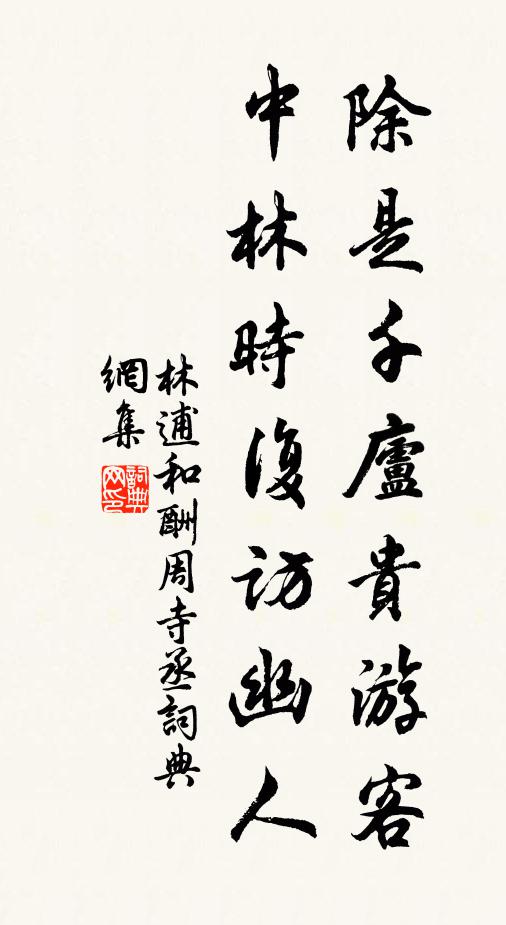 除是千廬貴游客
中林時復訪幽人
林逋和酬周寺丞詞典
網集
詞典
网印